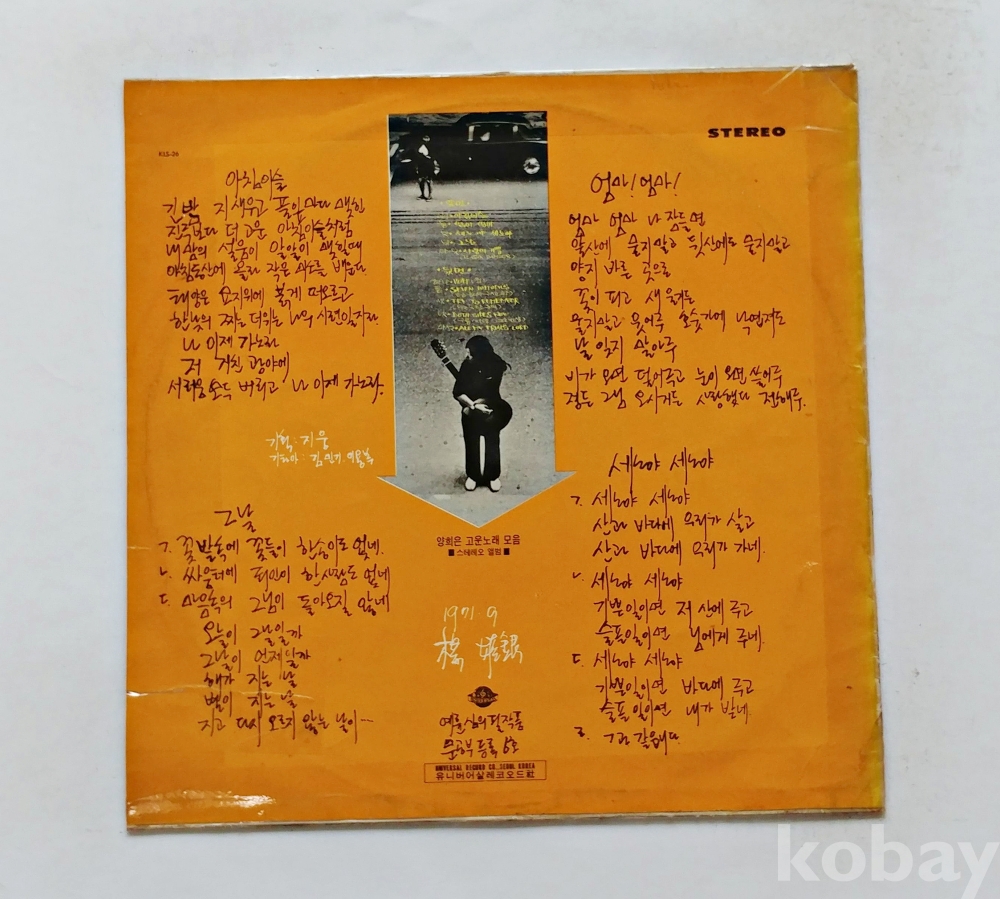 STEREO
KLS-26
아침이슬
긴밤 지새우고 풀잎마다 맺힌
진주보다 더 고운 아침이슬처럼
내 맘의 설움이 알알이 맺힐때
아침동산에 올라 작은 미소를 배운다
태양은 묘지위에 붉게 떠오르고
한낮의 찌는 더위는 나의 시련일지라
나 이제 가노라
저 거친 광야에
서러움 모두 버리고 나 이제 가노라.
기획: 지웅
기타아: 김민기.이용복
그날
ㄱ. 꽃밭속에 꽃들이 한송이도 없네.
ㄴ. 싸움터에 죄인이 한사람도 없네
ㄷ. 마음속의 그님이 돌아오질 않네
오늘이 그날일까
그날이 언제일까
해가 지는 날
별이 지는 날
지고 다시 오르지 않는 날이…
양희은 고운노래 모음
■ 스테레오 앨범 ■
1971.9
楊 姬銀
예륜심의필작품
문공부 등록 5호
UNIVERSAL RECORD CO., SEOUL KOREA
유니버어살레코오드社
엄마! 엄마!
엄마 엄마 나 잠들면
앞산에 묻지말고 뒷산에도 묻지말고
양지 바른 곳으로
꽃이 피고 새 울려도
울지말고 웃어주 호숫가에 낙엽져도
날 잊지 말아주
비가 오면 덮어주고 눈이 오면 쓸어주
정든 그님 오시거든 사랑했다 전해주.
세노야 세노야
ㄱ. 세노야 세노야
산과 바다에 우리가 살고
산과 바다에 우리가 가네.
ㄴ. 세노야 세노야
기쁜일이면 저 산에 주고
슬픈일이면 님에게 주네.
ㄷ. 세노야 세노야
기쁜일이면 바다에 주고
슬픈일이면 내가 받네.
ㄹ. ㄱ과 같습니다.
kobay